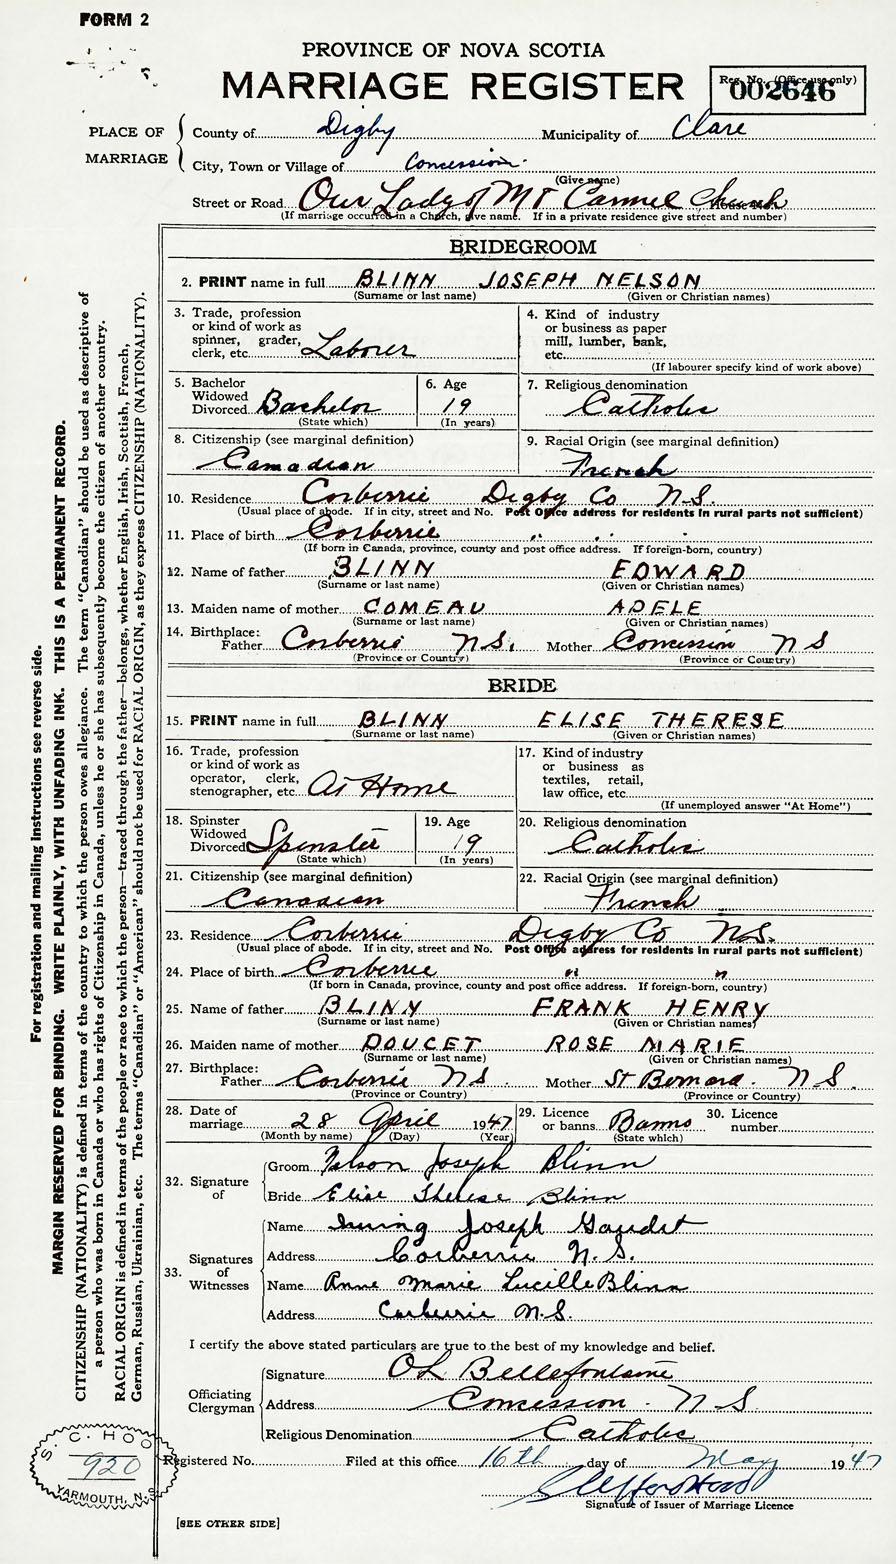 FORM 2
PROVINCE OF NOVA SCOTIA
MARRIAGE REGISTER
Reg. No. (Office use only)
002646
PLACE OF MARRIAGE
County of Digby Municipality of Clare
City, Town or Village of Concession
(Give name)
Street or Road Our Lady of Mt Carmel Church House No.
(If marriage occurred in a Church, give name. If in a private residence give street and number)
BRIDEGROOM
2. PRINT name in full BLINN JOSEPH NELSON
(Surname or last name) (Given or Christian names)
3. Trade, profession
or kind of work as
spinner, grader,
clerk, etc. Laborer
4. Kind of industry
or business as paper
mill, lumber, bank,
etc.
(If labourer specify kind of work above)
5. Bachelor
Widowed
Divorced Bachelor
(State which)
6. Age
19
(In years)
7. Religious denomination
Catholic
8. Citizenship (see marginal definition)
Canadian
9. Racial Origin (see marginal definition)
French
10. Residence Corberrie Digby Co N.S.
(Usual place of abode. If in city, street and No. Post Office address for residents in rural parts not sufficient)
11. Place of birth Corberrie " " "
(If born in Canada, province, county and post office address. If foreign-born, country)
12. Name of father BLINN EDWARD
(Surname or last name) (Given or Christian names)
13. Maiden name of mother COMEAU ADELE
(Surname or last name) (Given or Christian names)
14. Birthplace:
Father Corberrie N.S. Mother Concession N S
(Province or Country) (Province or Country)
BRIDE
15. PRINT name in full BLINN ELISE THERESE
(Surname or last name) (Given or Christian names)
16. Trade, profession
or kind of work as
operator, clerk,
stenographer, etc. At Home
17. Kind of industry
or business as
textiles, retail,
law office, etc.
(If unemployed answer "At Home")
18. Spinster
Widowed
Divorced Spinster
(State which)
19. Age
19
(In years)
20. Religious denomination
Catholic
21. Citizenship (see marginal definition)
Canadian
22. Racial Origin (see marginal definition)
French
23. Residence Corberrie Digby Co N.S.
(Usual place of abode. If in city, street and No. Post Office address for residents in rural parts not sufficient)
24. Place of birth Corberrie " "
(If born in Canada, province, county and post office address. If foreign-born, country)
25. Name of father BLINN FRANK HENRY
(Surname or last name) (Given or Christian names)
26. Maiden name of mother DOUCET ROSE MARIE
(Surname or last name) (Given or Christian names)
27. Birthplace:
Father Corberrie N S. Mother St Bernard. N S.
(Province or Country) (Province or Country)
28. Date of
marriage 28 April 1947
(Month by name) (Day) (Year)
29. Licence
or banns Banns
(State which)
30. Licence
number
32. Signature of
Groom Nelson Joseph Blinn
Bride Elise Therese Blinn
33. Signatures of Witnesses
Name Irving Joseph Gaudet
Address Corberrie N.S.
Name Anne Marie Lucille Blinn
Address Corberrie N.S.
I certify the above stated particulars are true to the best of my knowledge and belief.
Officiating Clergyman
Signature Bellefontaine
Address Concession. N S
Religious Denomination Catholic
Registered No. Filed at this office 16th day of May 1947
Clifford Hood
Signature of Issuer of Marriage Licence
[SEE OTHER SIDE]
S. C. HOO
920
YARMOUTH, N.S.
For registration and mailing instructions see reverse side.
MARGIN RESERVED FOR BINDING. WRITE PLAINLY, WITH UNFADING INK. THIS IS A PERMANENT RECORD.
CITIZENSHIP (NATIONALITY) is defined in terms of the country to which the person owes allegiance. The term "Canadian" should be used as descriptive of
a person who was born in Canada or who has rights of Citizenship in Canada, unless he or she has subsequently become the citizen of another country.
RACIAL ORIGIN is defined in terms of the people or race to which the person—traced through the father—belongs, whether English, Irish, Scottish, French,
German, Russian, Ukrainian, etc. The terms "Canadian" or "American" should not be used for RACIAL ORIGIN, as they express CITIZENSHIP (NATIONALITY).